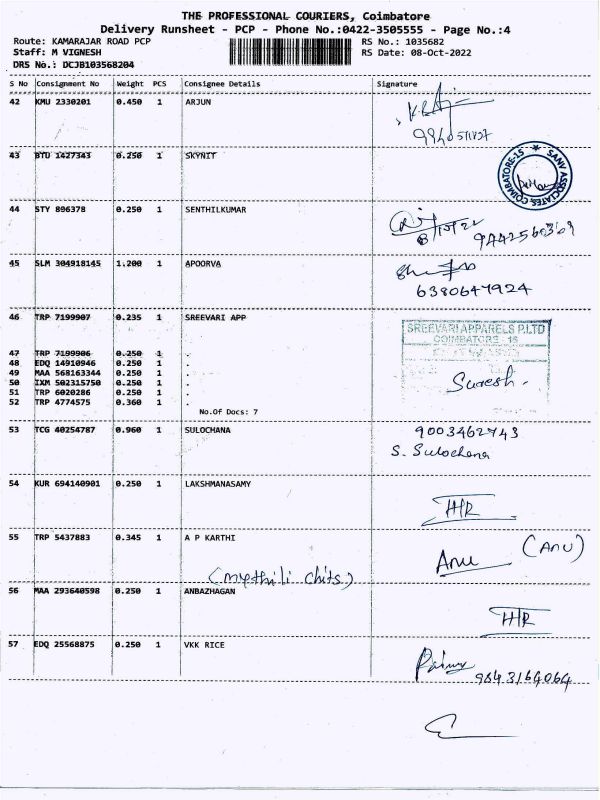 THE PROFESSIONAL COURIERS, Coimbatore
Delivery Runsheet - PCP - Phone No.:0422-3505555 - Page No.:4
Route: KAMARAJAR ROAD PCP RS No.: 1035682
Staff: M VIGNESH RS Date: 08-Oct-2022
DRS No.: DCJB103568204
S No Consignment No Weight PCS Consignee Details Signature
42 KMU 2330201 0.450 1 ARJUN
43 BTU 1427343 0.250 1 SKYNIT
SANV ASSOCIATES COIMBATORE-15
44 STY 896378 0.250 1 SENTHILKUMAR
45 SLM 304918145 1.200 1 APOORVA
6380647924
46 TRP 7199907 0.235 1 SREEVARI APP
SREEVARI APPARELS P.LTD
COIMBATORE - 15
47 TRP 7199906 0.250 1 .
48 EDQ 14910946 0.250 1 .
49 MAA 568163344 0.250 1 .
50 IXM 502315750 0.250 1 .
51 TRP 6020286 0.250 1 .
52 TRP 4774575 0.360 1 .
Suresh.
No.Of Docs: 7
53 TCG 40254787 0.960 1 SULOCHANA 9003462743
S. Sulochana
54 KUR 694140901 0.250 1 LAKSHMANASAMY
H/R
55 TRP 5437883 0.345 1 A P KARTHI
Anu (ANU)
(Mythili Chits)
56 MAA 293640598 0.250 1 ANBAZHAGAN
H/R
57 EDQ 25568875 0.250 1 VKK RICE
9843164064